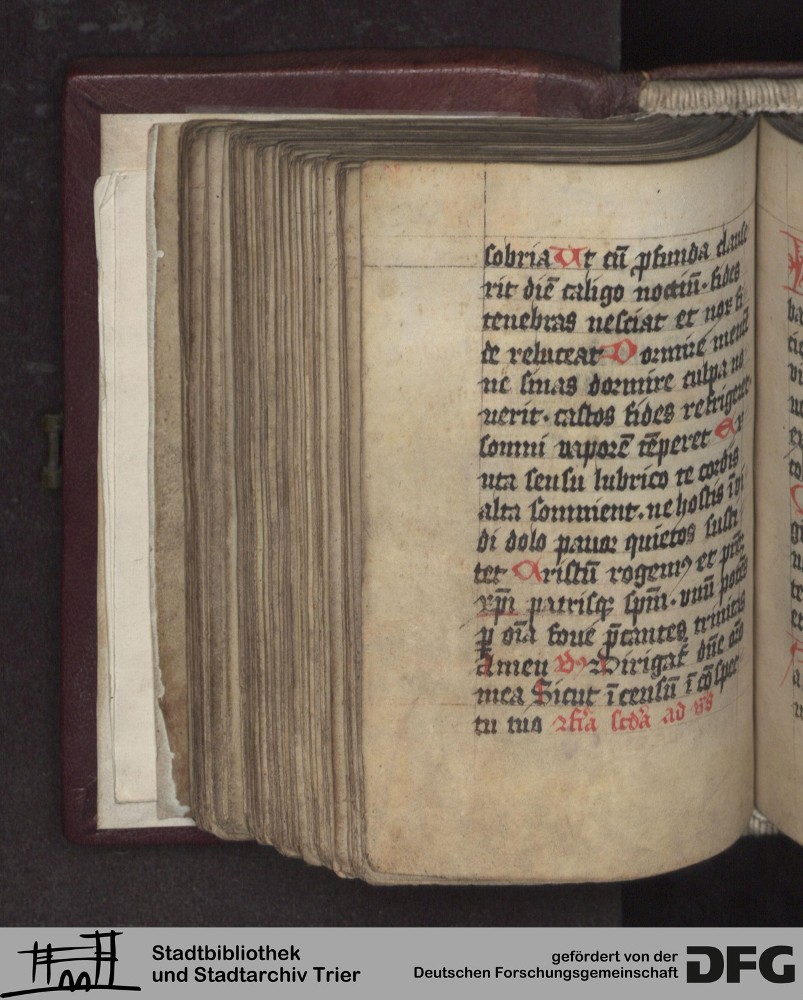 sobria Ut cū ꝓfunda clause
rit diē caligo noctiū. fides
tenebras nesciat et nox fi
de reluceat Dormire mentē
ne sinas dormire culpa no
uerit. castos fides refrigerās
somni vaporē tēperet Ex
uta sensu lubrico te cordis
alta somnient. ne hostis īvi
di dolo pauor quietos susci
tet Cristū rogemꝰ et prēm
xp̄i patrisqꝫ spm̄. vnū potēs
ꝑ oīa foue p̄cantes trinitas
Amen V. Dirigat᷑ dn̄e orō
mea Sicut īcensū ī cōspec
tu tuo Fr̄ia scd̄a ad vs̄
Stadtbibliothek
und Stadtarchiv Trier
gefördert von der
Deutschen Forschungsgemeinschaft
DFG